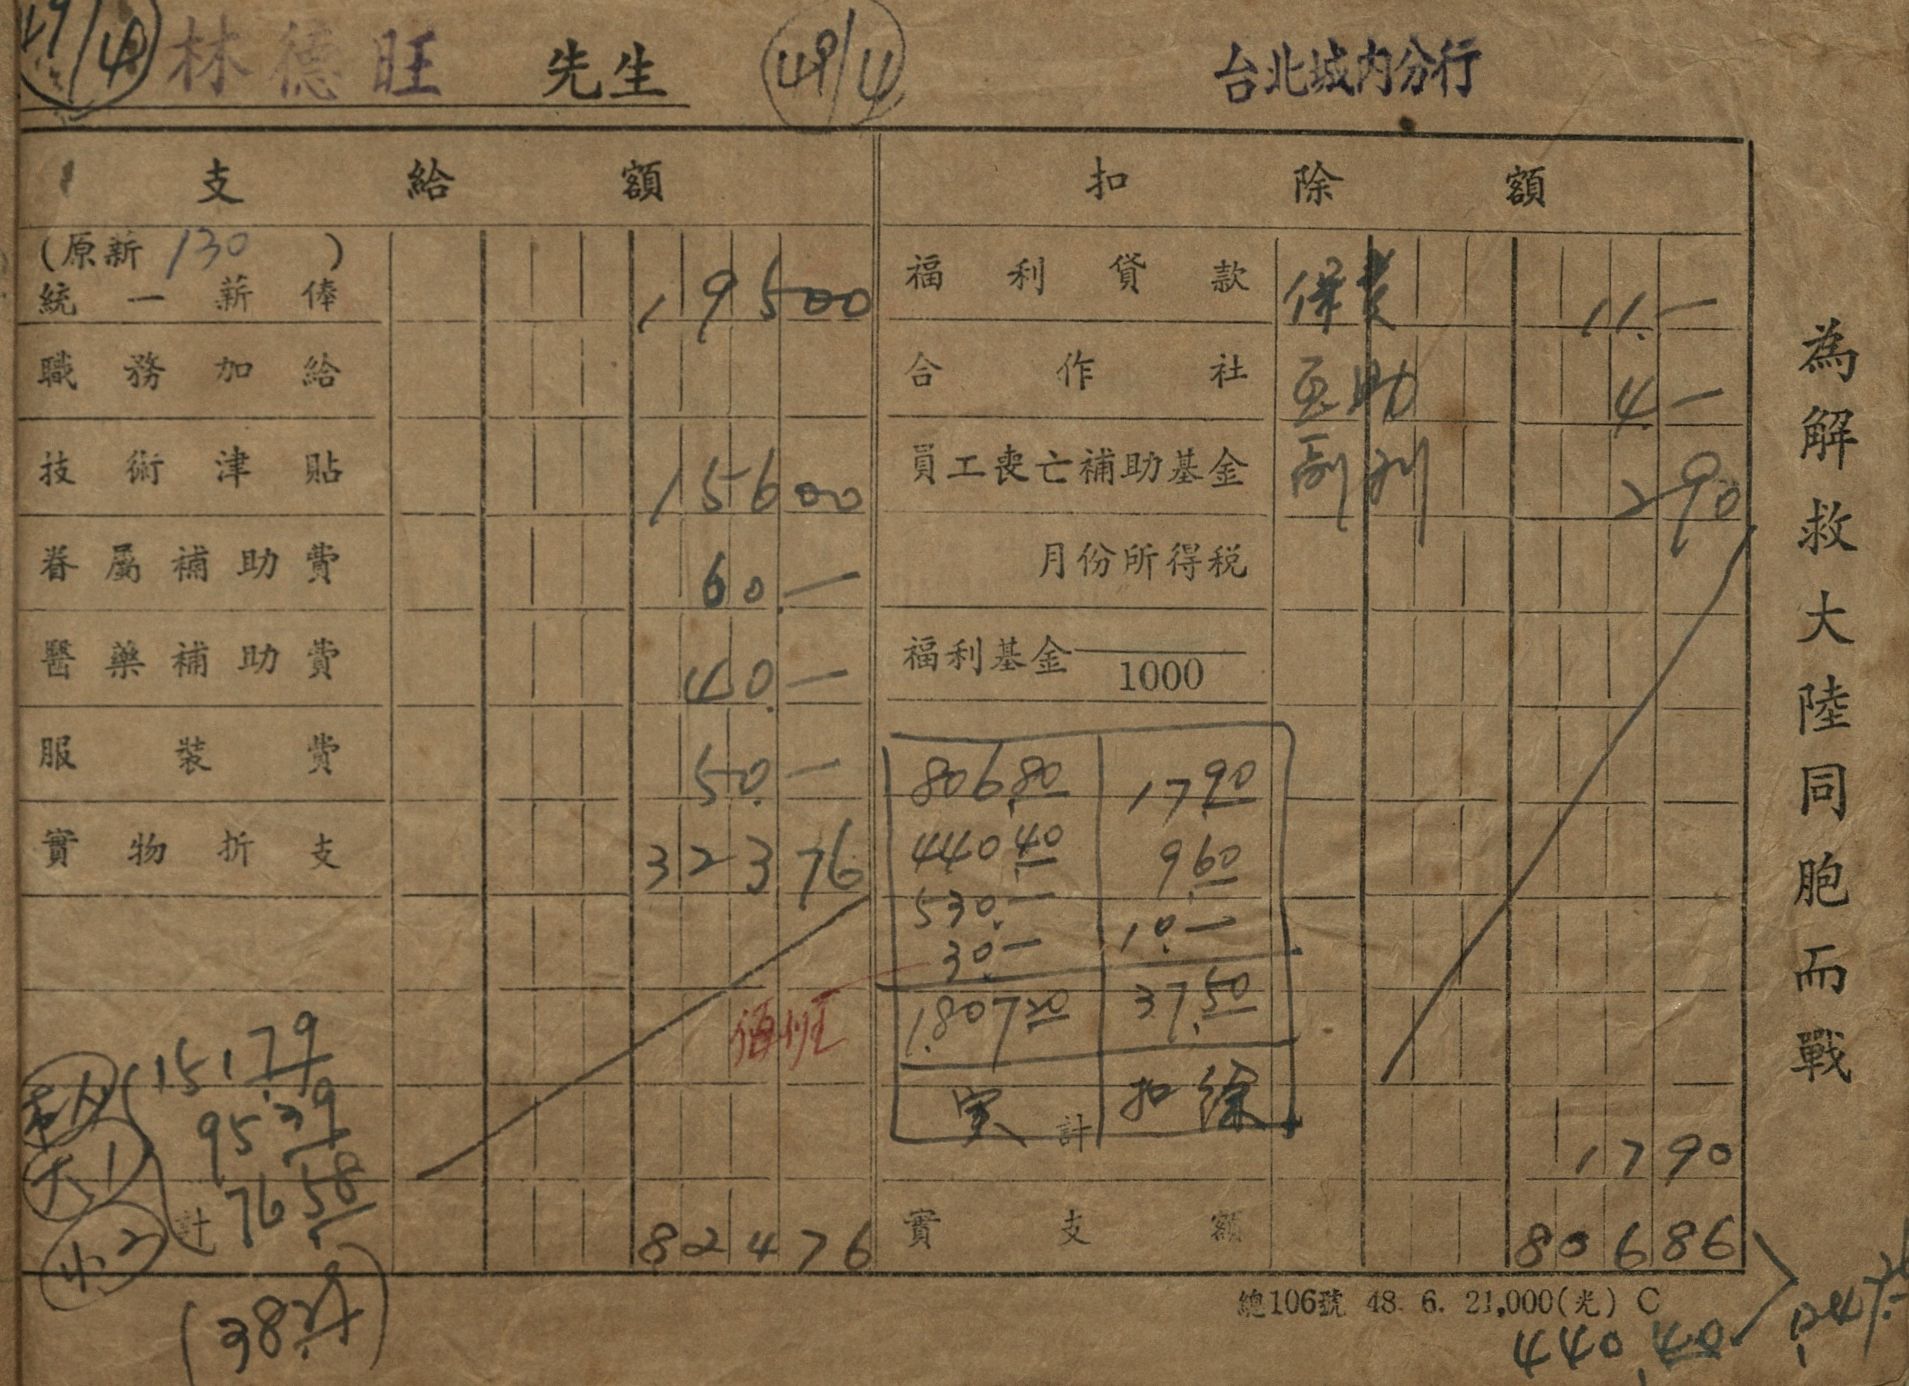 49/4 林德旺 先生 49/4 台北城內分行
支給額 扣除額
(原薪 130 )
統一薪俸 19500 福利貸款 保費 11.—
職務加給 合作社 互助 4—
技術津貼 15600 員工喪亡補助基金 副刊 290
眷屬補助費 60.— 月份所得税
醫藥補助費 40.— 福利基金 1000
服裝費 50.—
實物折支 32376
806.80 17.90
440.40 9.60
530.— 10.—
30.— 
1.807.20 37.50
实 扣除
計 1790
本人 151.79
大1 95.39
小2 76.58
計 82476 實支額 80686
總106號 48. 6. 21,000(光) C
440.40
為解救大陸同胞而戰